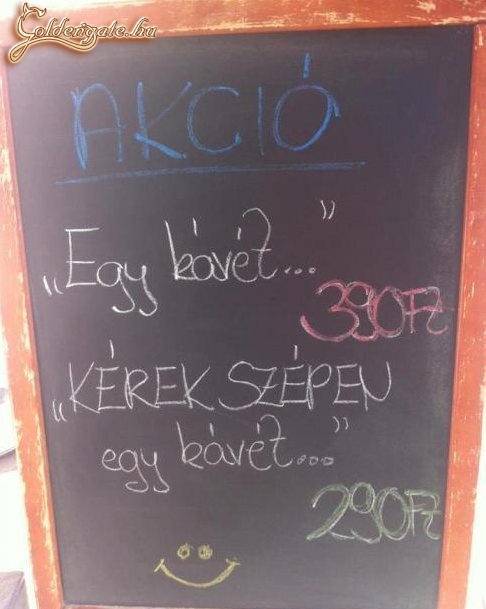 Goldengate.hu
AKCIÓ
„Egy kávét..."
390Ft
„KÉREK SZÉPEN
egy kávét..."
290Ft